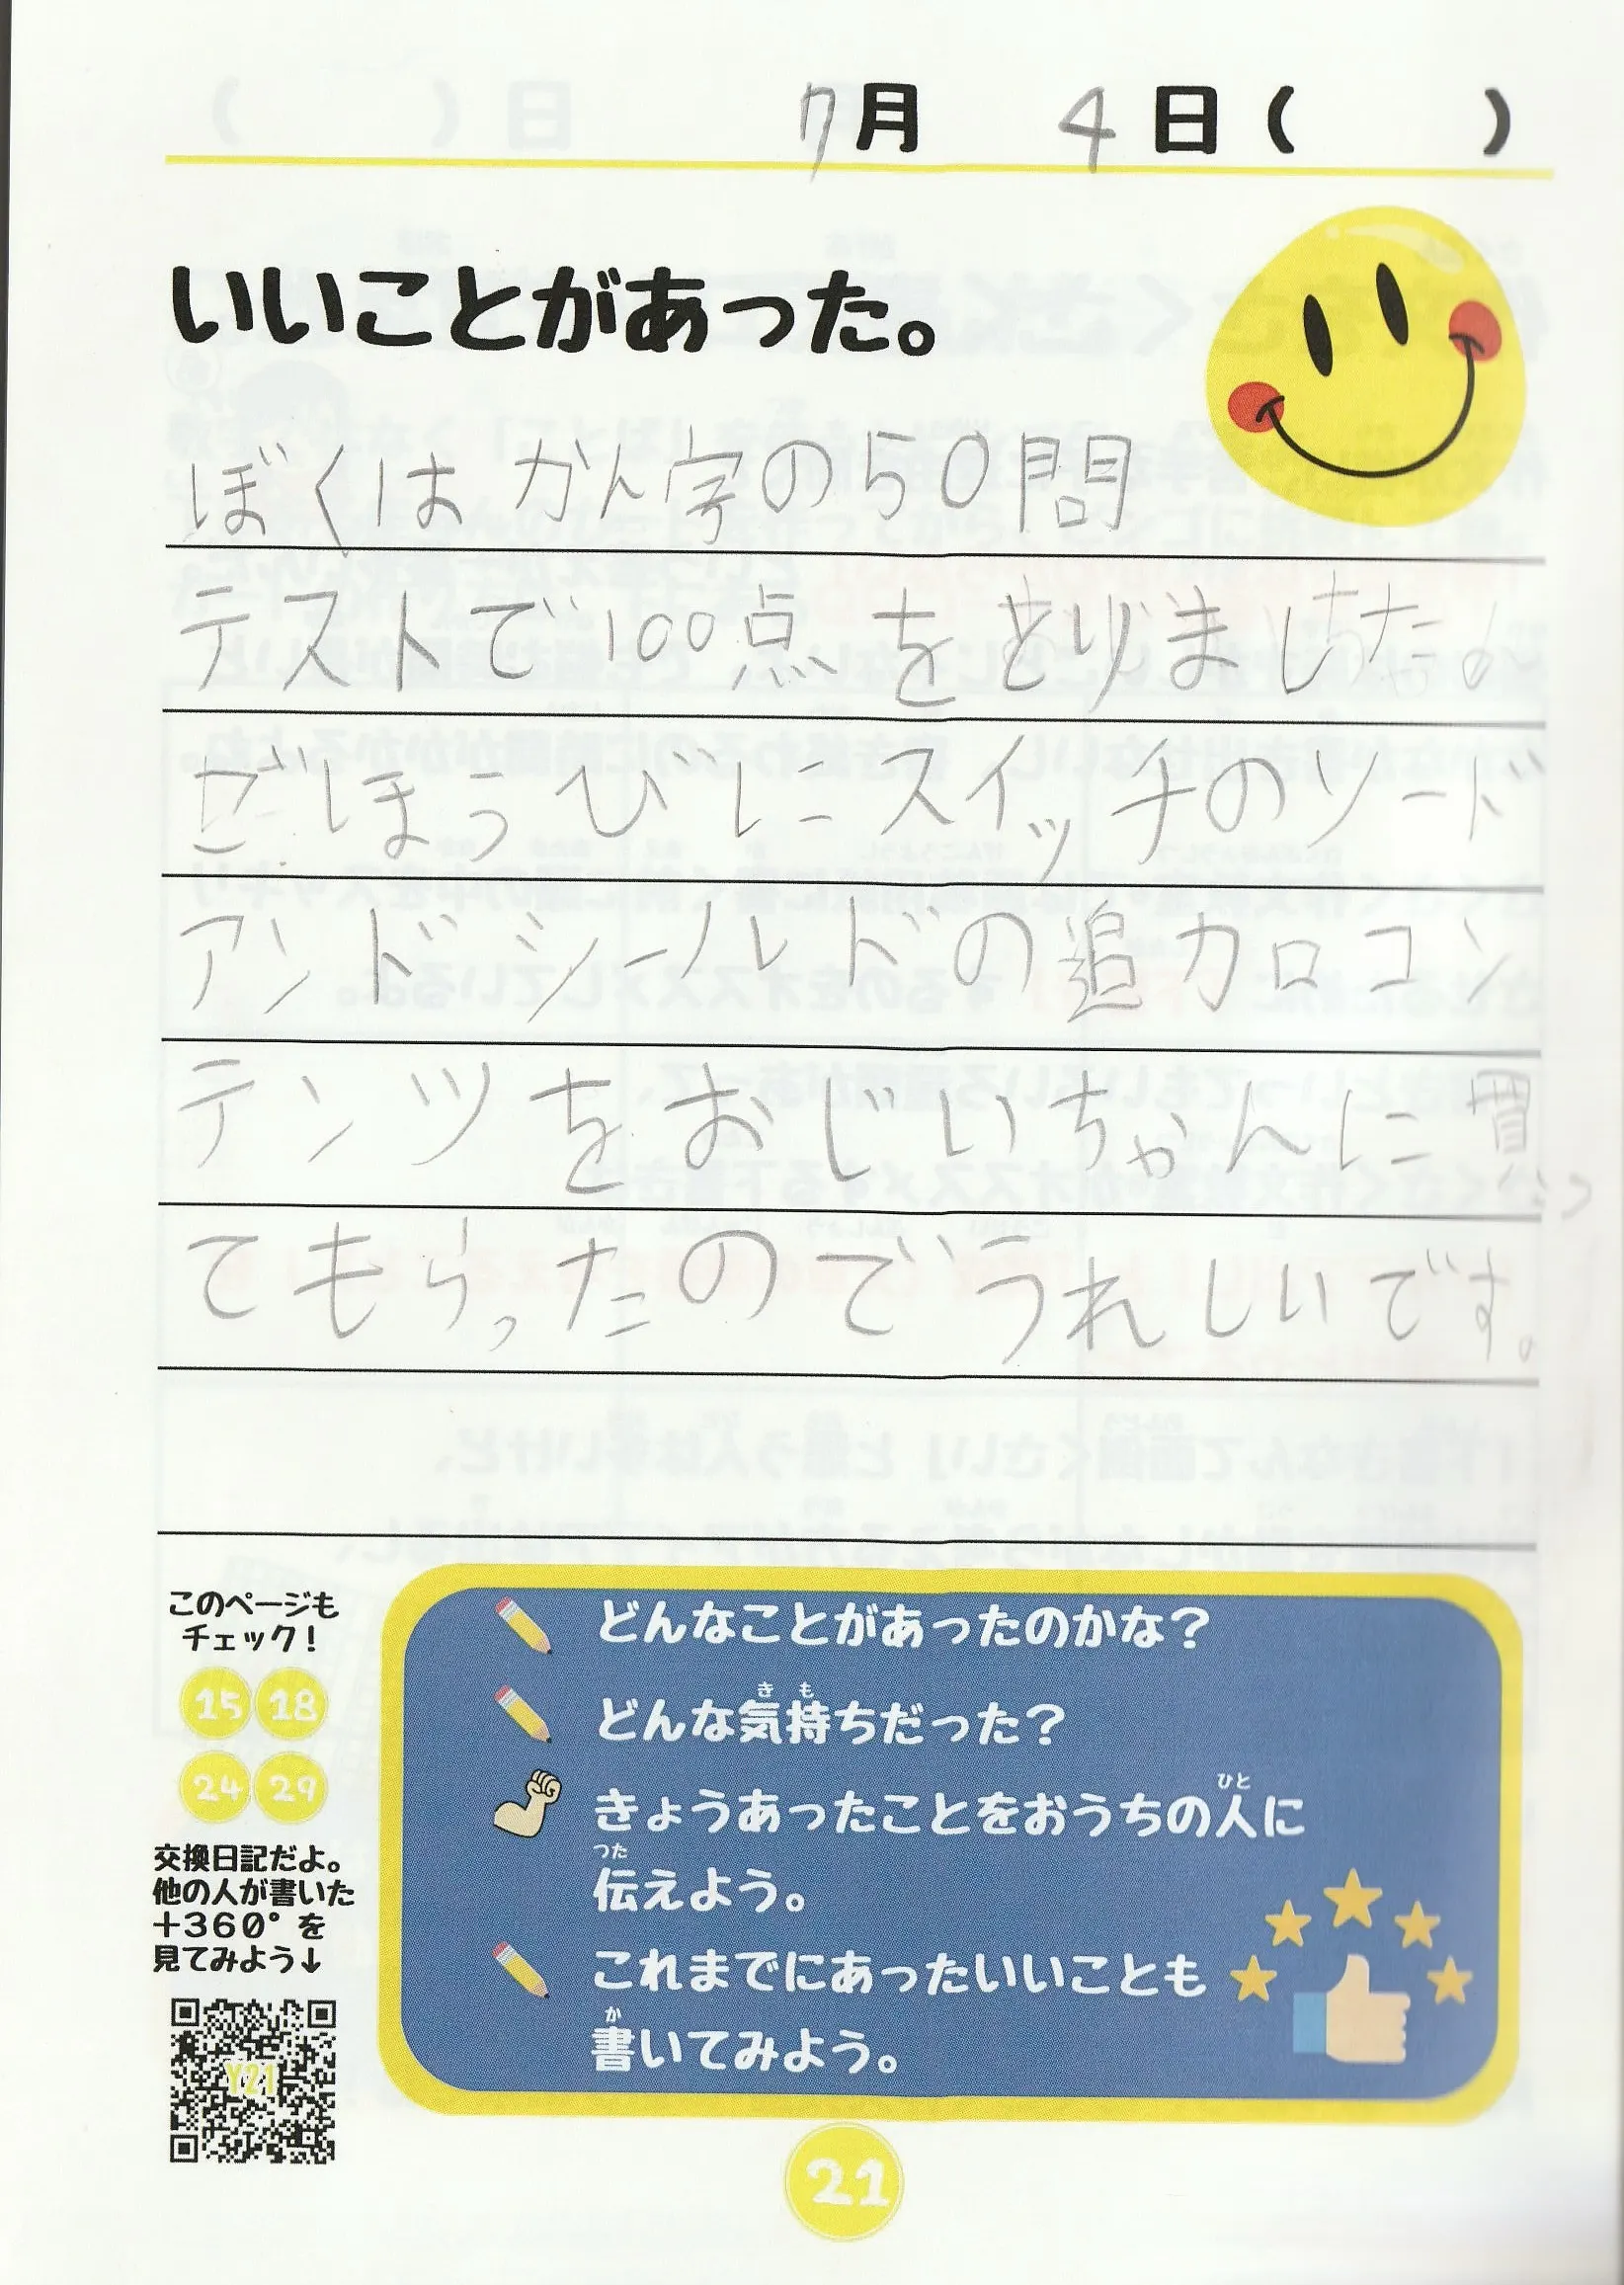 7月 4日( )
いいことがあった。
ぼくはかん字の50問
テストで100点をとりました。
ごほうびにスイッチのソード
アンドシールドの追加コン
テンツをおじいちゃんに買っ
てもらったのでうれしいです。
このページも
チェック!
15 18
24 29
交換日記だよ。
他の人が書いた
+360°を
見てみよう↓
Y21
どんなことがあったのかな?
き も
どんな気持ちだった?
ひと
きょうあったことをおうちの人に
つた
伝えよう。
これまでにあったいいことも
か
書いてみよう。
21